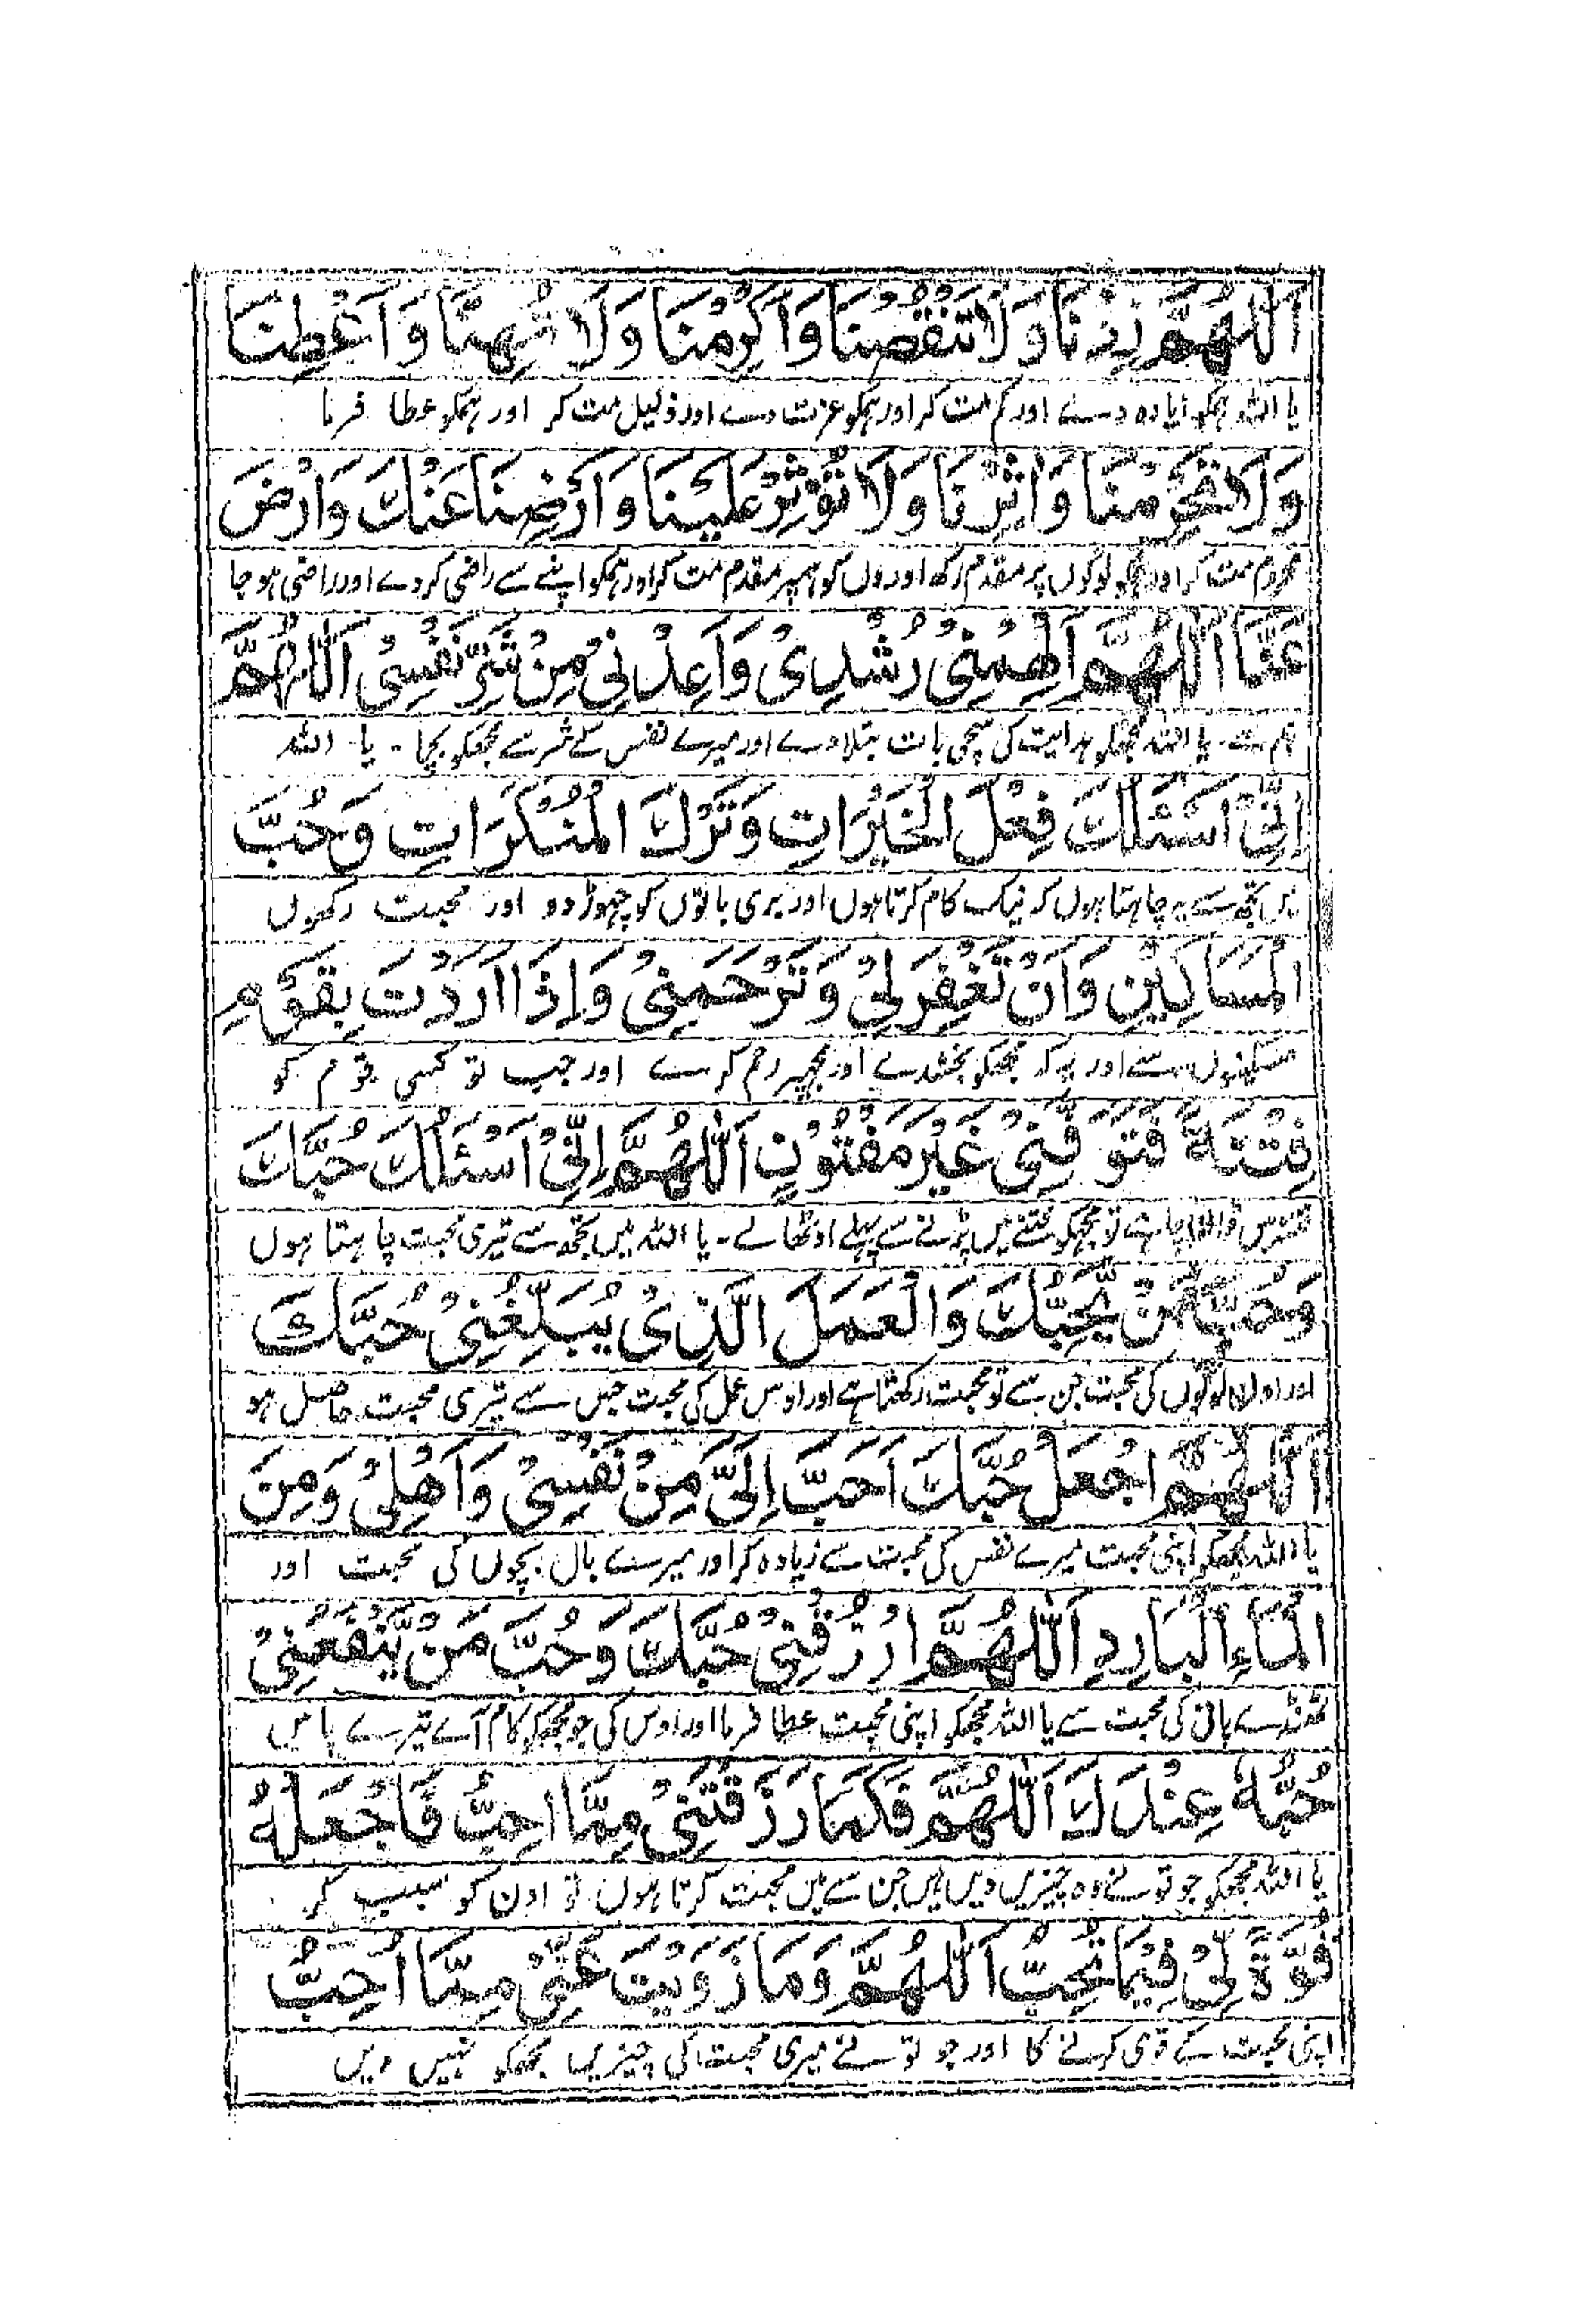 اَللّٰهُمَّ زِدْنَا وَلَا تَنْقُصْنَا وَاَكْرِمْنَا وَلَا تُهِنَّا وَاَعْطِنَا
یا اللہ ہمکو زیادہ دے اور کم مت کر اور ہمکو عزت دے اور ذلیل مت کر اور ہمکو عطا فرما
وَلَا تَحْرِمْنَا وَاٰثِرْنَا وَلَا تُؤْثِرْ عَلَيْنَا وَاَرْضِنَا عَنْكَ وَارْضَ
محروم مت کر اور ہمکو لوگوں پر مقدم رکھ اوروں کو ہمپر مقدم مت کر اور ہمکو اپنے سے راضی کردے اور راضی ہو جا
عَنَّا اَللّٰهُمَّ اَلْهِمْنِيْ رُشْدِيْ وَاَعِذْنِيْ مِنْ شَرِّ نَفْسِيْ اَللّٰهُمَّ
ہم سے ۔ یا اللہ مجھکو ہدایت کی سچی بات بتلا دے اور میرے نفس کے شر سے مجھکو بچا ۔ یا اللہ
اِنِّيْ اَسْئَلُكَ فِعْلَ الْخَيْرَاتِ وَتَرْكَ الْمُنْكَرَاتِ وَحُبَّ
میں تجھ سے یہ چاہتا ہوں کہ نیک کام کرتا ہوں اور بری باتوں کو چہوڑ دو اور محبت رکھوں
الْمَسَاكِيْنِ وَاَنْ تَغْفِرَ لِيْ وَتَرْحَمَنِيْ وَاِذَا اَرَدْتَ بِقَوْمٍ
مسکینوں سے اور یہ کہ مجھکو بخشدے اور مجھپر رحم کرے اور جب تو کسی قوم کو
فِتْنَةً فَتَوَفَّنِيْ غَيْرَ مَفْتُوْنٍ اَللّٰهُمَّ اِنِّيْ اَسْئَلُكَ حُبَّكَ
فتنہ میں ڈالنا چاہے تو مجھکو فتنے میں پڑنے سے پہلے اوٹھا لے ۔ یا اللہ میں تجھ سے تیری محبت چاہتا ہوں
وَحُبَّ مَنْ يُّحِبُّكَ وَالْعَمَلَ الَّذِيْ يُبَلِّغُنِيْ حُبَّكَ
اور اون لوگوں کی محبت جن سے تو محبت رکھتا ہے اور اوس عمل کی محبت جس سے تیری محبت حاصل ہو
اَللّٰهُمَّ اجْعَلْ حُبَّكَ اَحَبَّ اِلَيَّ مِنْ نَفْسِيْ وَاَهْلِيْ وَمِنَ
یا اللہ مجھکو اپنی محبت میرے نفس کی محبت سے زیادہ کر اور میرے بال بچوں کی محبت اور
الْمَاءِ الْبَارِدِ اَللّٰهُمَّ ارْزُقْنِيْ حُبَّكَ وَحُبَّ مَنْ يَّنْفَعُنِيْ
ٹھنڈے پانی کی محبت سے یا اللہ مجھکو اپنی محبت عطا فرما اور اوس کی جو مجھکو کام آے تیرے پاس
حُبُّهٗ عِنْدَكَ اَللّٰهُمَّ فَكَمَا رَزَقْتَنِيْ مِمَّا اُحِبُّ فَاجْعَلْهُ
یا اللہ مجھکو جو تو نے وہ چیزیں دیں ہیں جن سے میں محبت کرتا ہوں تو اون کو سبب کر
قُوَّةً لِّيْ فِيْمَا تُحِبُّ اَللّٰهُمَّ وَمَا زَوَيْتَ عَنِّيْ مِمَّا اُحِبُّ
اپنی محبت کے قوی کرنے کا اور جو تو نے میری محبت کی چیزیں مجھکو نہیں دیں